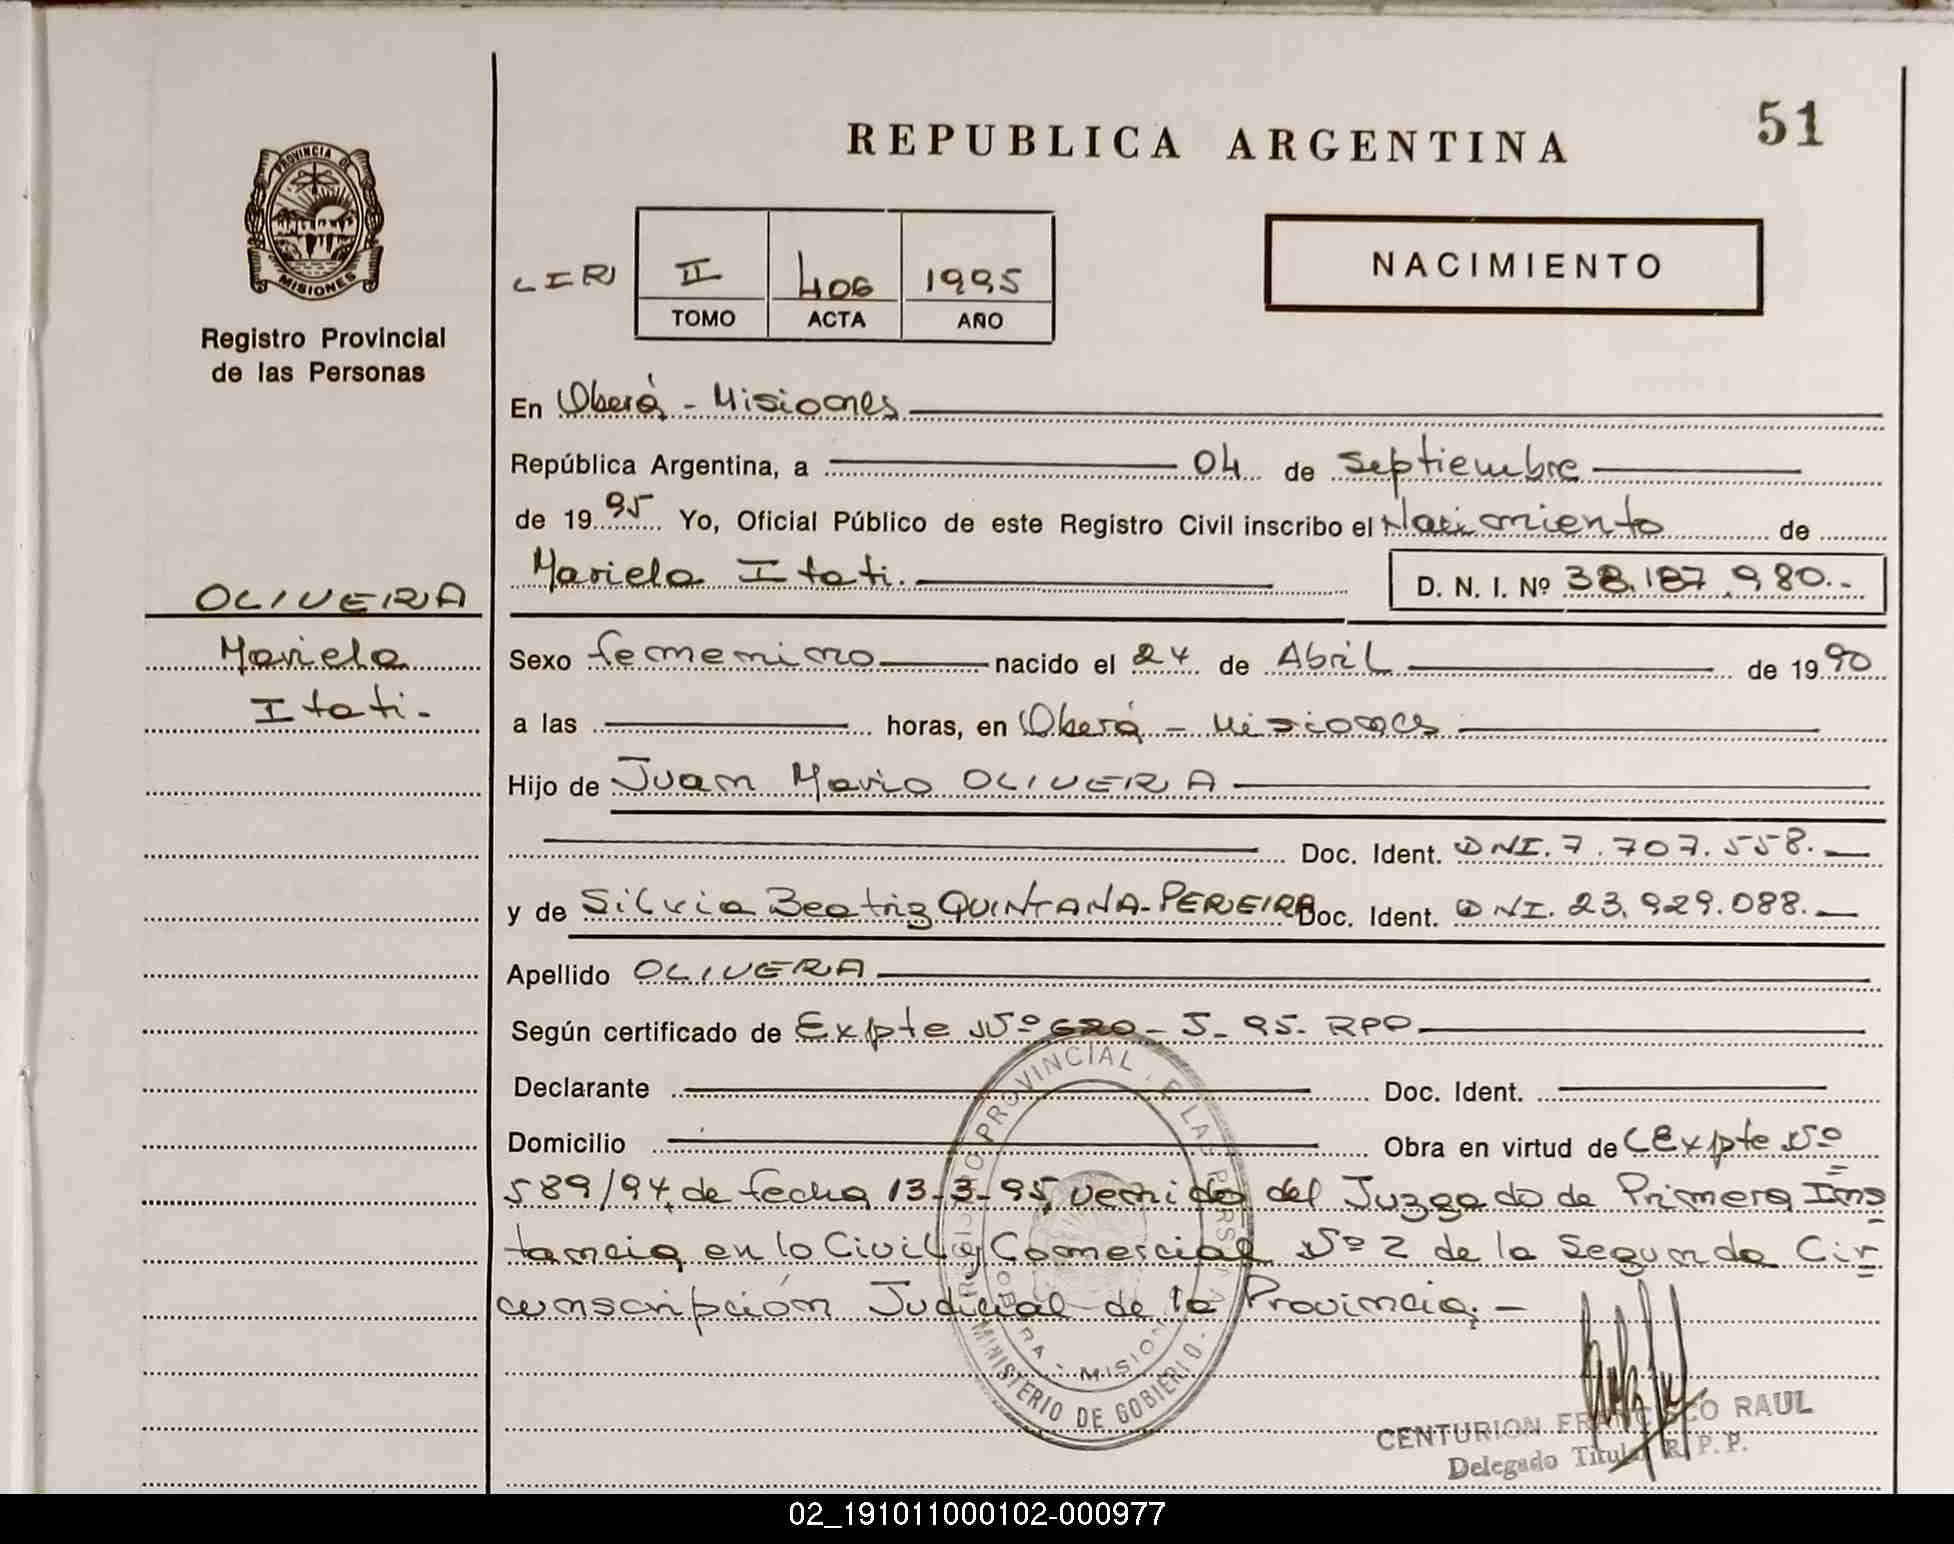 REPUBLICA ARGENTINA
51
PROVINCIA DE
MISIONES
Registro Provincial
de las Personas
II 406 1995
TOMO ACTA AÑO
NACIMIENTO
En Oberá - Misiones
República Argentina, a 04 de Septiembre
de 1995 Yo, Oficial Público de este Registro Civil inscribo el Nacimiento de
Mariela Itati. D. N. I. Nº 38.187.980.-
OLIVERA
Mariela
Itati.-
Sexo femenino nacido el 24 de Abril de 1990
a las horas, en Oberá - Misiones
Hijo de Juan Mario OLIVERA
Doc. Ident. DNI. 7.707.558.-
y de Silvia Beatriz QUINTANA-PEREIRA Doc. Ident. DNI. 23.929.088.-
Apellido OLIVERA
Según certificado de Expte Nº 620-J-95- RPP
Declarante Doc. Ident.
Domicilio Obra en virtud de Expte Nº
589/94 de fecha 13-3-95 venido del Juzgado de Primera Ins
tancia en lo Civil y Comercial Nº 2 de la Segunda Cir
cunscripción Judicial de la Provincia.-
MINISTERIO DE GOBIERNO
CENTURION FRANCISCO RAUL
Delegado Titular R. P. P.
02_191011000102-000977